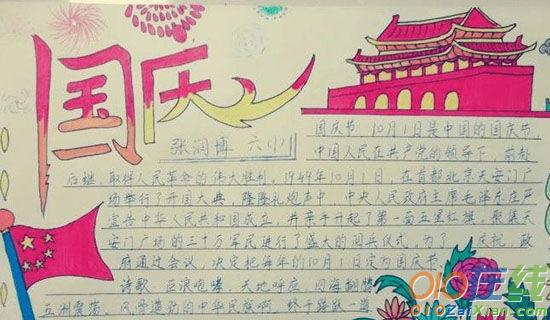 国庆
张润博 六(1)
国庆节,10月1日是中国的国庆节,
中国人民在共产党的领导下,前赴
后继,取得人民革命的伟大胜利,1949年10月1日,在首都北京天安门广
场举行了开国大典,隆隆礼炮声中,中央人民政府主席毛泽东庄严
宣告中华人民共和国成立,并亲手升起了第一面五星红旗,聚集天
安门广场的三十万军民进行了盛大的阅兵仪式,为了 庆祝,政
府通过会议,决定把每年的10月1日定为国庆节
诗歌,巨浪咆哮,天地呼应,四海翻腾
五洲震荡,风雪造劲的中华民族啊,终于踏
在线
ZaiXian.com